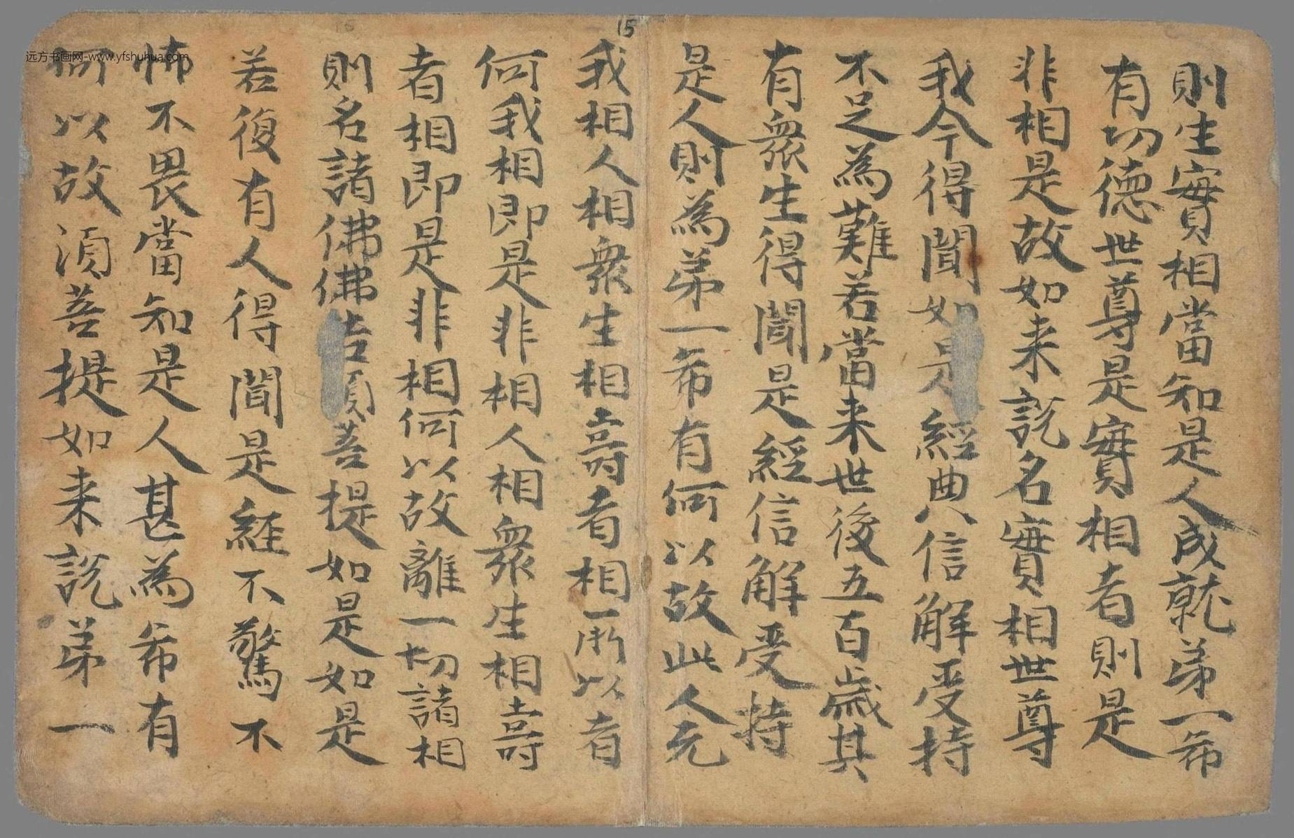 則生實相當知是人成就弟一希
有切德世尊是實相者則是
非相是故如来說名實相世尊
我今得聞如是經典信解受持
不足為難若當来世後五百歲其
有衆生得聞是經信解受持
是人則為弟一希有何以故此人无
我相人相衆生相壽者相一所以者
何我相即是非相人相衆生相壽
者相即是非相何以故離一切諸相
則名諸佛佛告須菩提如是如是
若復有人得聞是經不驚不
怖不畏當知是人甚為希有
何以故須菩提如来說弟一
15
远方书画网-www.yfshuhua.com